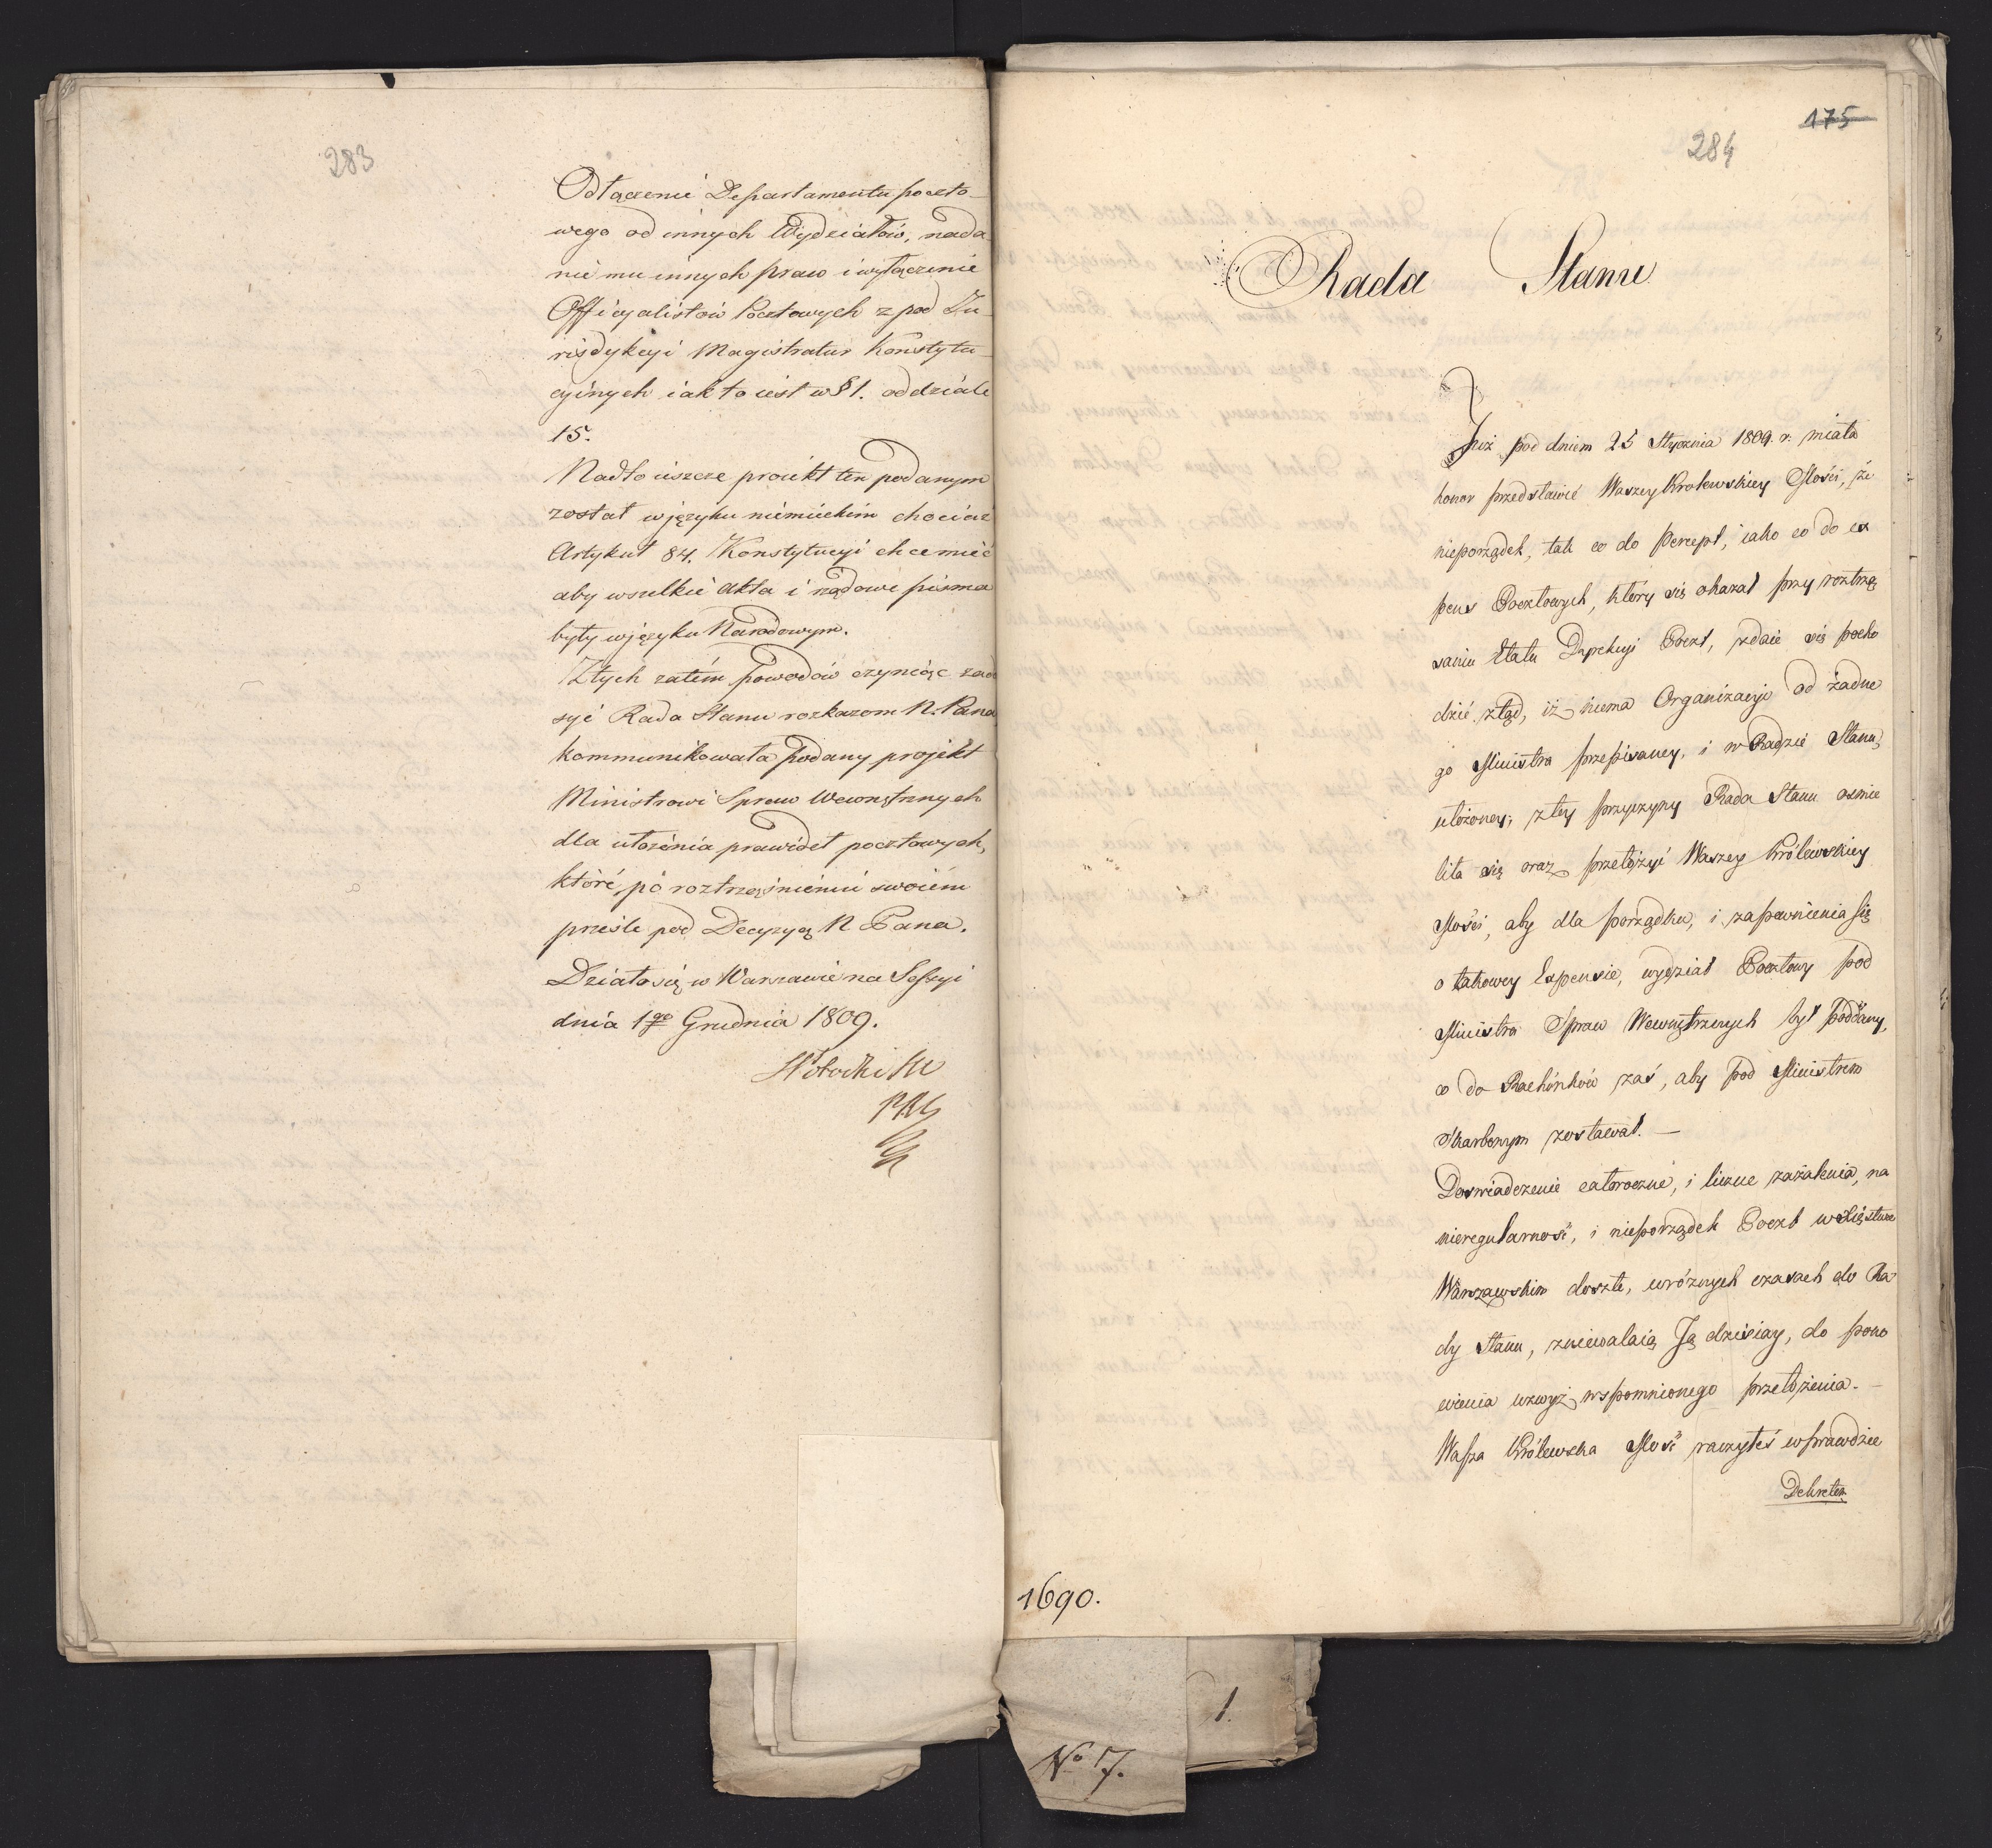 283
Odłączenie Departamentu poczto-
wego od innych Wydziałów, nada-
nie mu innych praw i wyłączenie
Officyalistów Pocztowych z pod Ju-
risdykcyi Magistratur Konstytu-
cyinych iak to iest w § 1. oddziale
15.
Nadto ieszcze proiekt ten podanym
został w języku niemieckim chociaż
Artykuł 84. Konstytucyi chce mieć
aby wszelkie Akta i rządowe pisma
były w języku Narodowym.
Z tych zatém powodów czyniąc zado-
syć Rada Stanu rozkazom N. Pana
kommunikowała podany projekt
Ministrowi Spraw Wewnętrznych
dla ułożenia prawideł pocztowych,
które, po roztrząśnieniu swoiém
prześle pod Decyzyą N. Pana.
Działo się w Warszawie na Sessyi
dnia 1go Grudnia 1809.
175
284
Rada Stanu
Już pod dniem 25 Stycznia 1809. r. miała
honor przedstawić Waszey Królewskiey Mości, że
nieporządek, tak co do Percept, iako co do ex
pens Pocztowych, który się okazał przy roztrzą
saniu Etatu Dyrekcyi Poczt, zdaie się pocho
dzić ztąd, iż niema Organizacyi od żadne
go Ministra przepisaney, i w Radzie Stanu
ułożoney; z tey przyczyny Rada Stanu ośmie
liła się oraz przełożyć Waszey Królewskiey
Mości, aby dla porządku, i zapewnienia się
o takowey Expensie, wydział Pocztowy pod
Ministra Spraw Wewnętrznych był poddany,
co do Rachunków zaś, aby pod Ministrem
Skarbowym zostawał. —
Doswiadczenie całoroczne, i liczne zażalenia, na
nieregularność, i nieporządek Poczt w Xięstwie
Warszawskim doszłe, w różnych czasach do Ra-
dy Stanu, zniewalaią Ją dzisiay, do pono
wienia wzwyż wspomnionego przełożenia. —
Wasza Królewska Mość raczyłeś wprawdzie
Dekretem
1690.
1.
No 7.